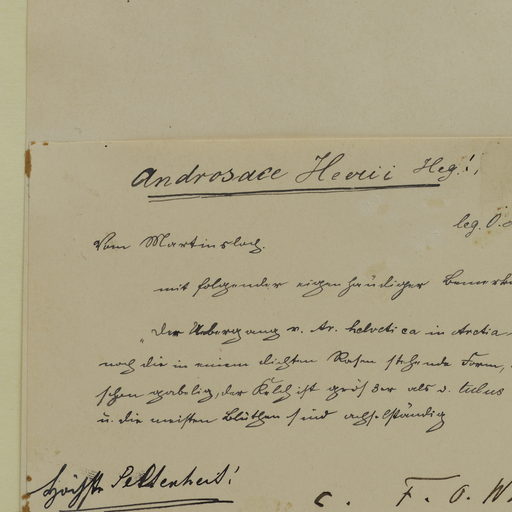 Androsace Heerii Heg.!
leg. O.
Vom Martinsloch.
mit folgender eigenhändiger Bemerk
„Der Uebergang v. Ar. helvetica in Aretia
noch die in einem dichten Rasen stehende Form,
schon gabelig, der Kelch ist größer als d. tubus
u. die meisten Blüthen sind achselständig
Höchste Seltenheit!
C. F. O. W